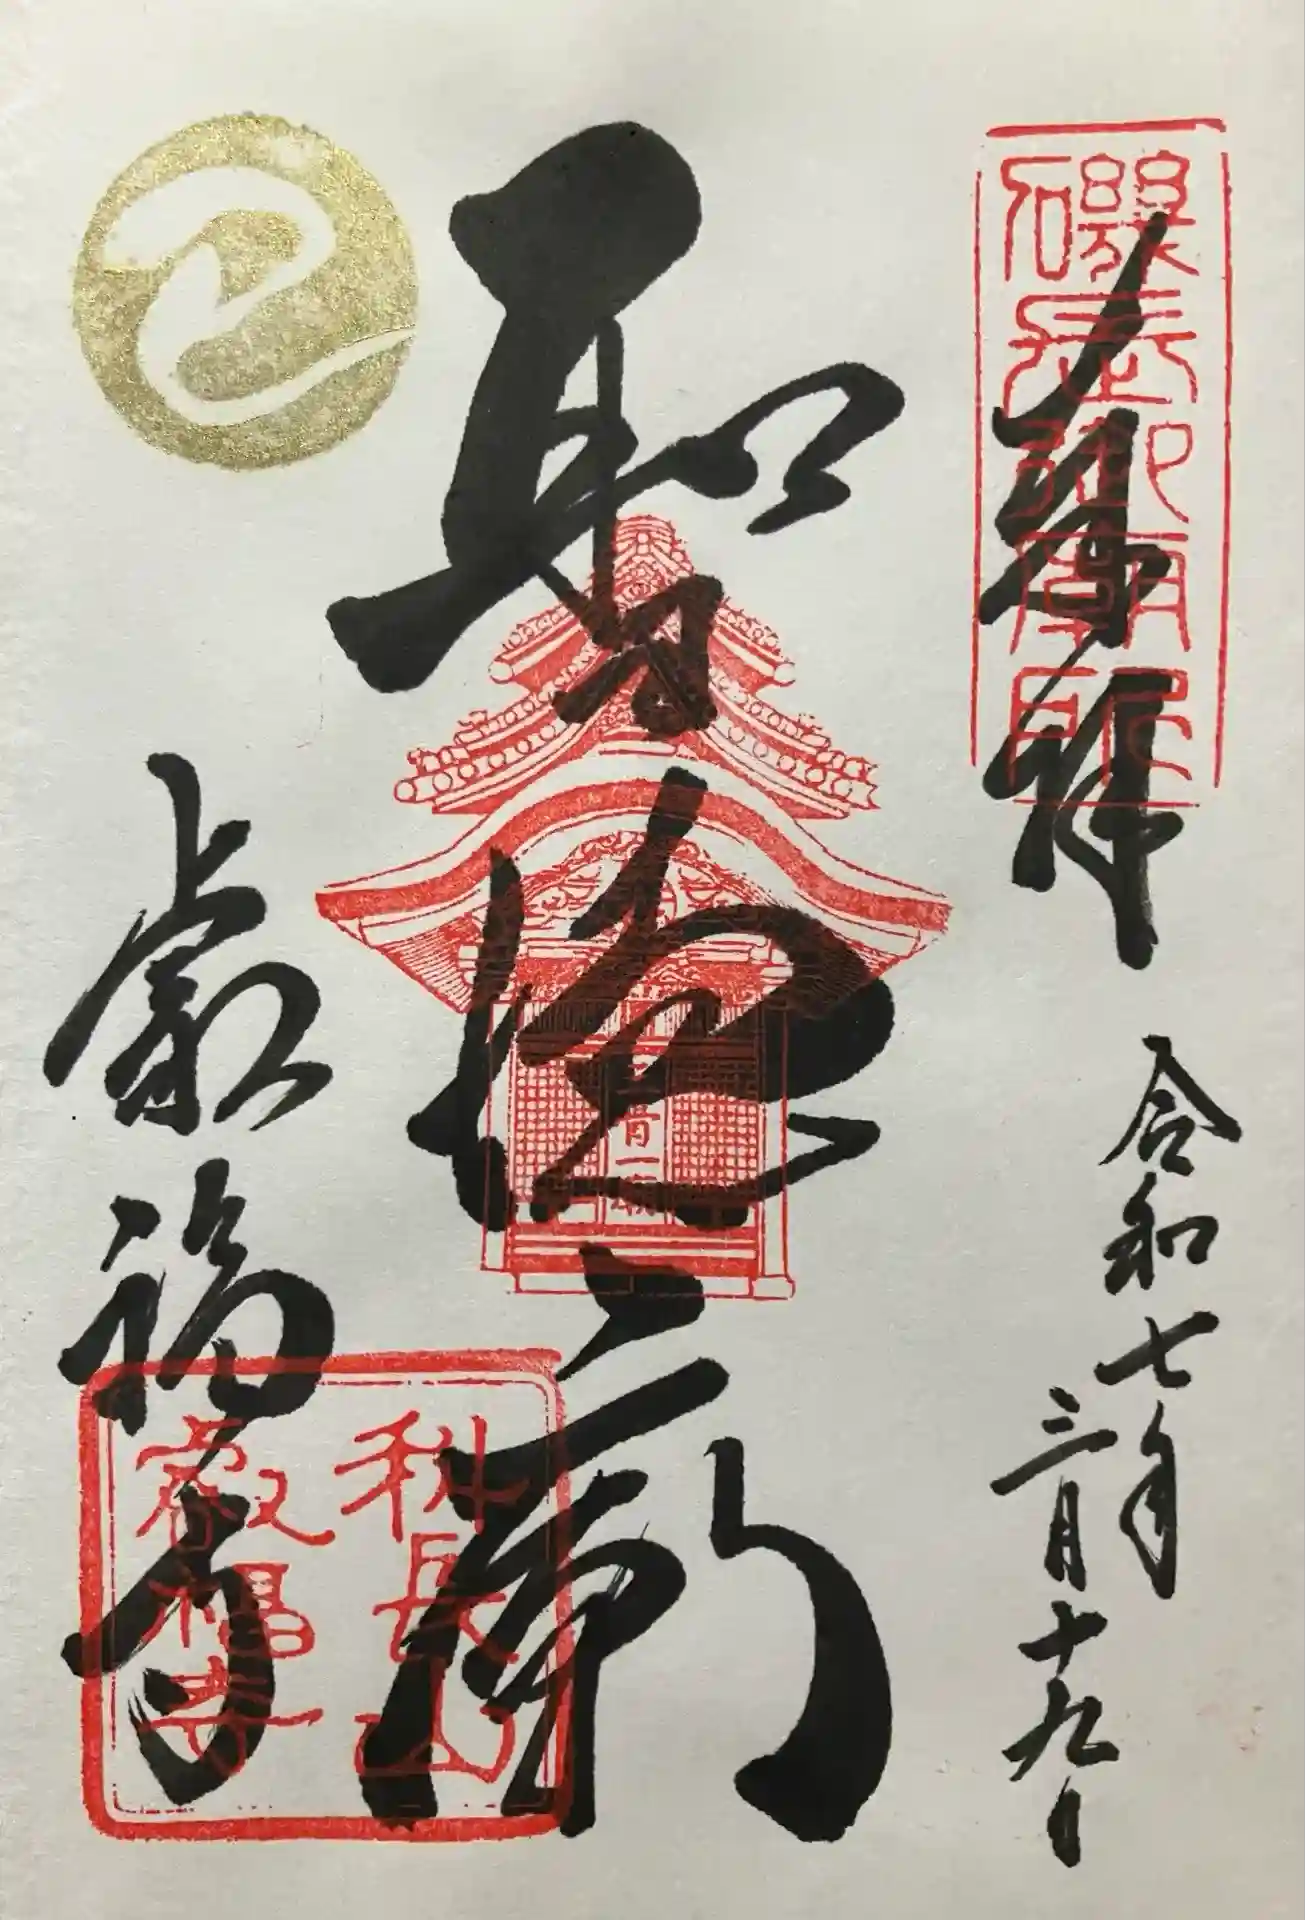 奉拝
磯長御廟所
令和七年
三月十九日
聖徳廟
三骨一廟
叡福寺
科長山
叡福寺